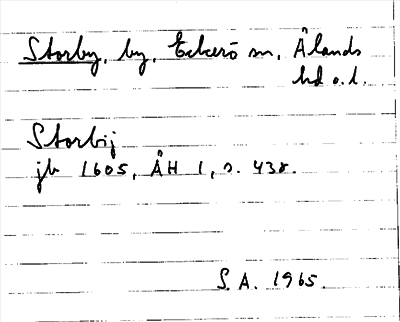 Storby, by, Eckerö sn, Ålands
hd o. l.
Storbij
jb 1605, ÅH 1, s. 438.
S. A. 1965.